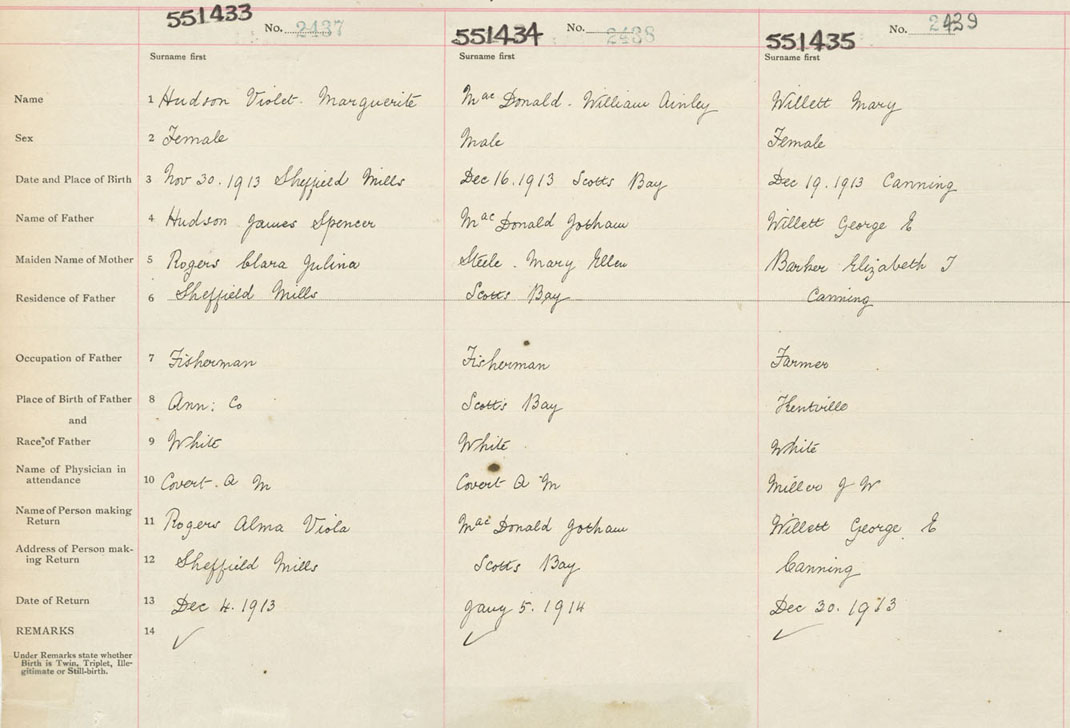 551433 No. 2437 551434 No. 2438 551435 No. 2439
Surname first Surname first Surname first
Name 1 Hudson Violet. Marguerite Mac Donald. William Ainley Willett Mary
Sex 2 Female Male Female
Date and Place of Birth 3 Nov 30. 1913 Sheffield Mills Dec 16. 1913 Scotts Bay Dec 19. 1913 Canning
Name of Father 4 Hudson James Spencer Mac Donald Gotham Willett George E
Maiden Name of Mother 5 Rogers Clara Julina Steele. Mary Ellen Barker Elizabeth J
Residence of Father 6 Sheffield Mills Scotts Bay Canning
Occupation of Father 7 Fisherman Fisherman Farmer
Place of Birth of Father 8 Ann: Co Scotts Bay Kentville
and
Race of Father 9 White White White
Name of Physician in
attendance 10 Covert. A M Covert A M Miller J W
Name of Person making
Return 11 Rogers Alma Viola Mac Donald Gotham Willett George. E
Address of Person mak-
ing Return 12 Sheffield Mills Scotts Bay Canning
Date of Return 13 Dec 4. 1913 Jany 5. 1914 Dec 30. 1913
REMARKS 14 ✓ ✓ ✓
Under Remarks state whether
Birth is Twin, Triplet, Ille-
gitimate or Still-birth.